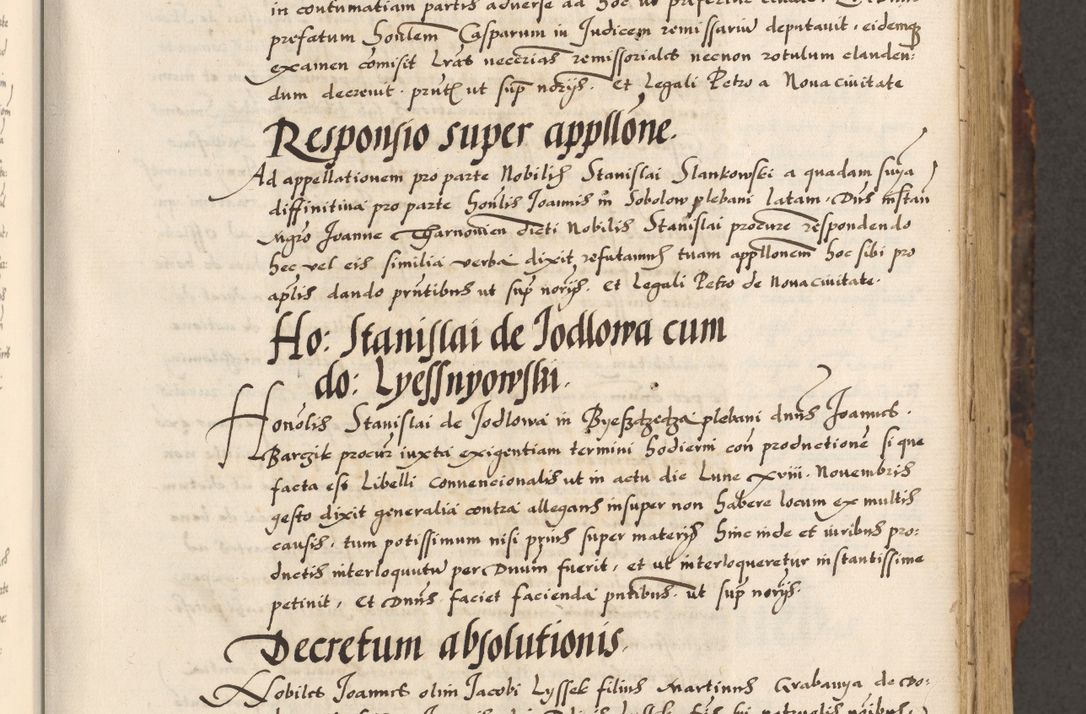 in contumatiam partis adverse ad hoc
prefatum honlem Casparum in Judicem remissariu deputavit, eidemq
examen comisit Lras necerias remissoriales necnon rotulum clauden:
dum decrevit. prntes ut sup norijs. Et Legali Petro a Nova civitate
Responsio super appllone.
Ad appellationem pro parte Nobilis Stanislai Slankowski a quadam snya
diffinitiva pro parte honlis Joannis in Sobolow plebani latam. Dns instan
Mgro Joanne Tharnowien dicti Nobilis Stanislai procure respondendo
hec vel eis similia verba dixit refutamus tuam appllonem hoc sibi pro
aplis dando prntibus ut sup norijs. Et Legali Petro de Nova civitate.
Ho: Stanislai de Jodlowa cum
do: Lyessnyowski.
Honolis Stanislai de Jodlowa in plebani dnus Joannes.
Barczik procur iuxta exigentiam termini hodierni con productione si que
facta esi Libelli convencionalis ut in actu die Lune xviii. Novembris
gesto dixit generalia contra allegans insuper non habere locum ex multis
causis, tum potissimum nisi prius super materijs hinc inde et iuribus pro:
ductis interloquutu per Dnum fuerit, et ut interloqueretur instantissime
petivit, Et Dnus faciet facienda pntibus. ut sup norijs.
Decretum absolutionis.
Nobiles Joannes olim Jacobi Lyssek filius Martinus Grabanya de Do: